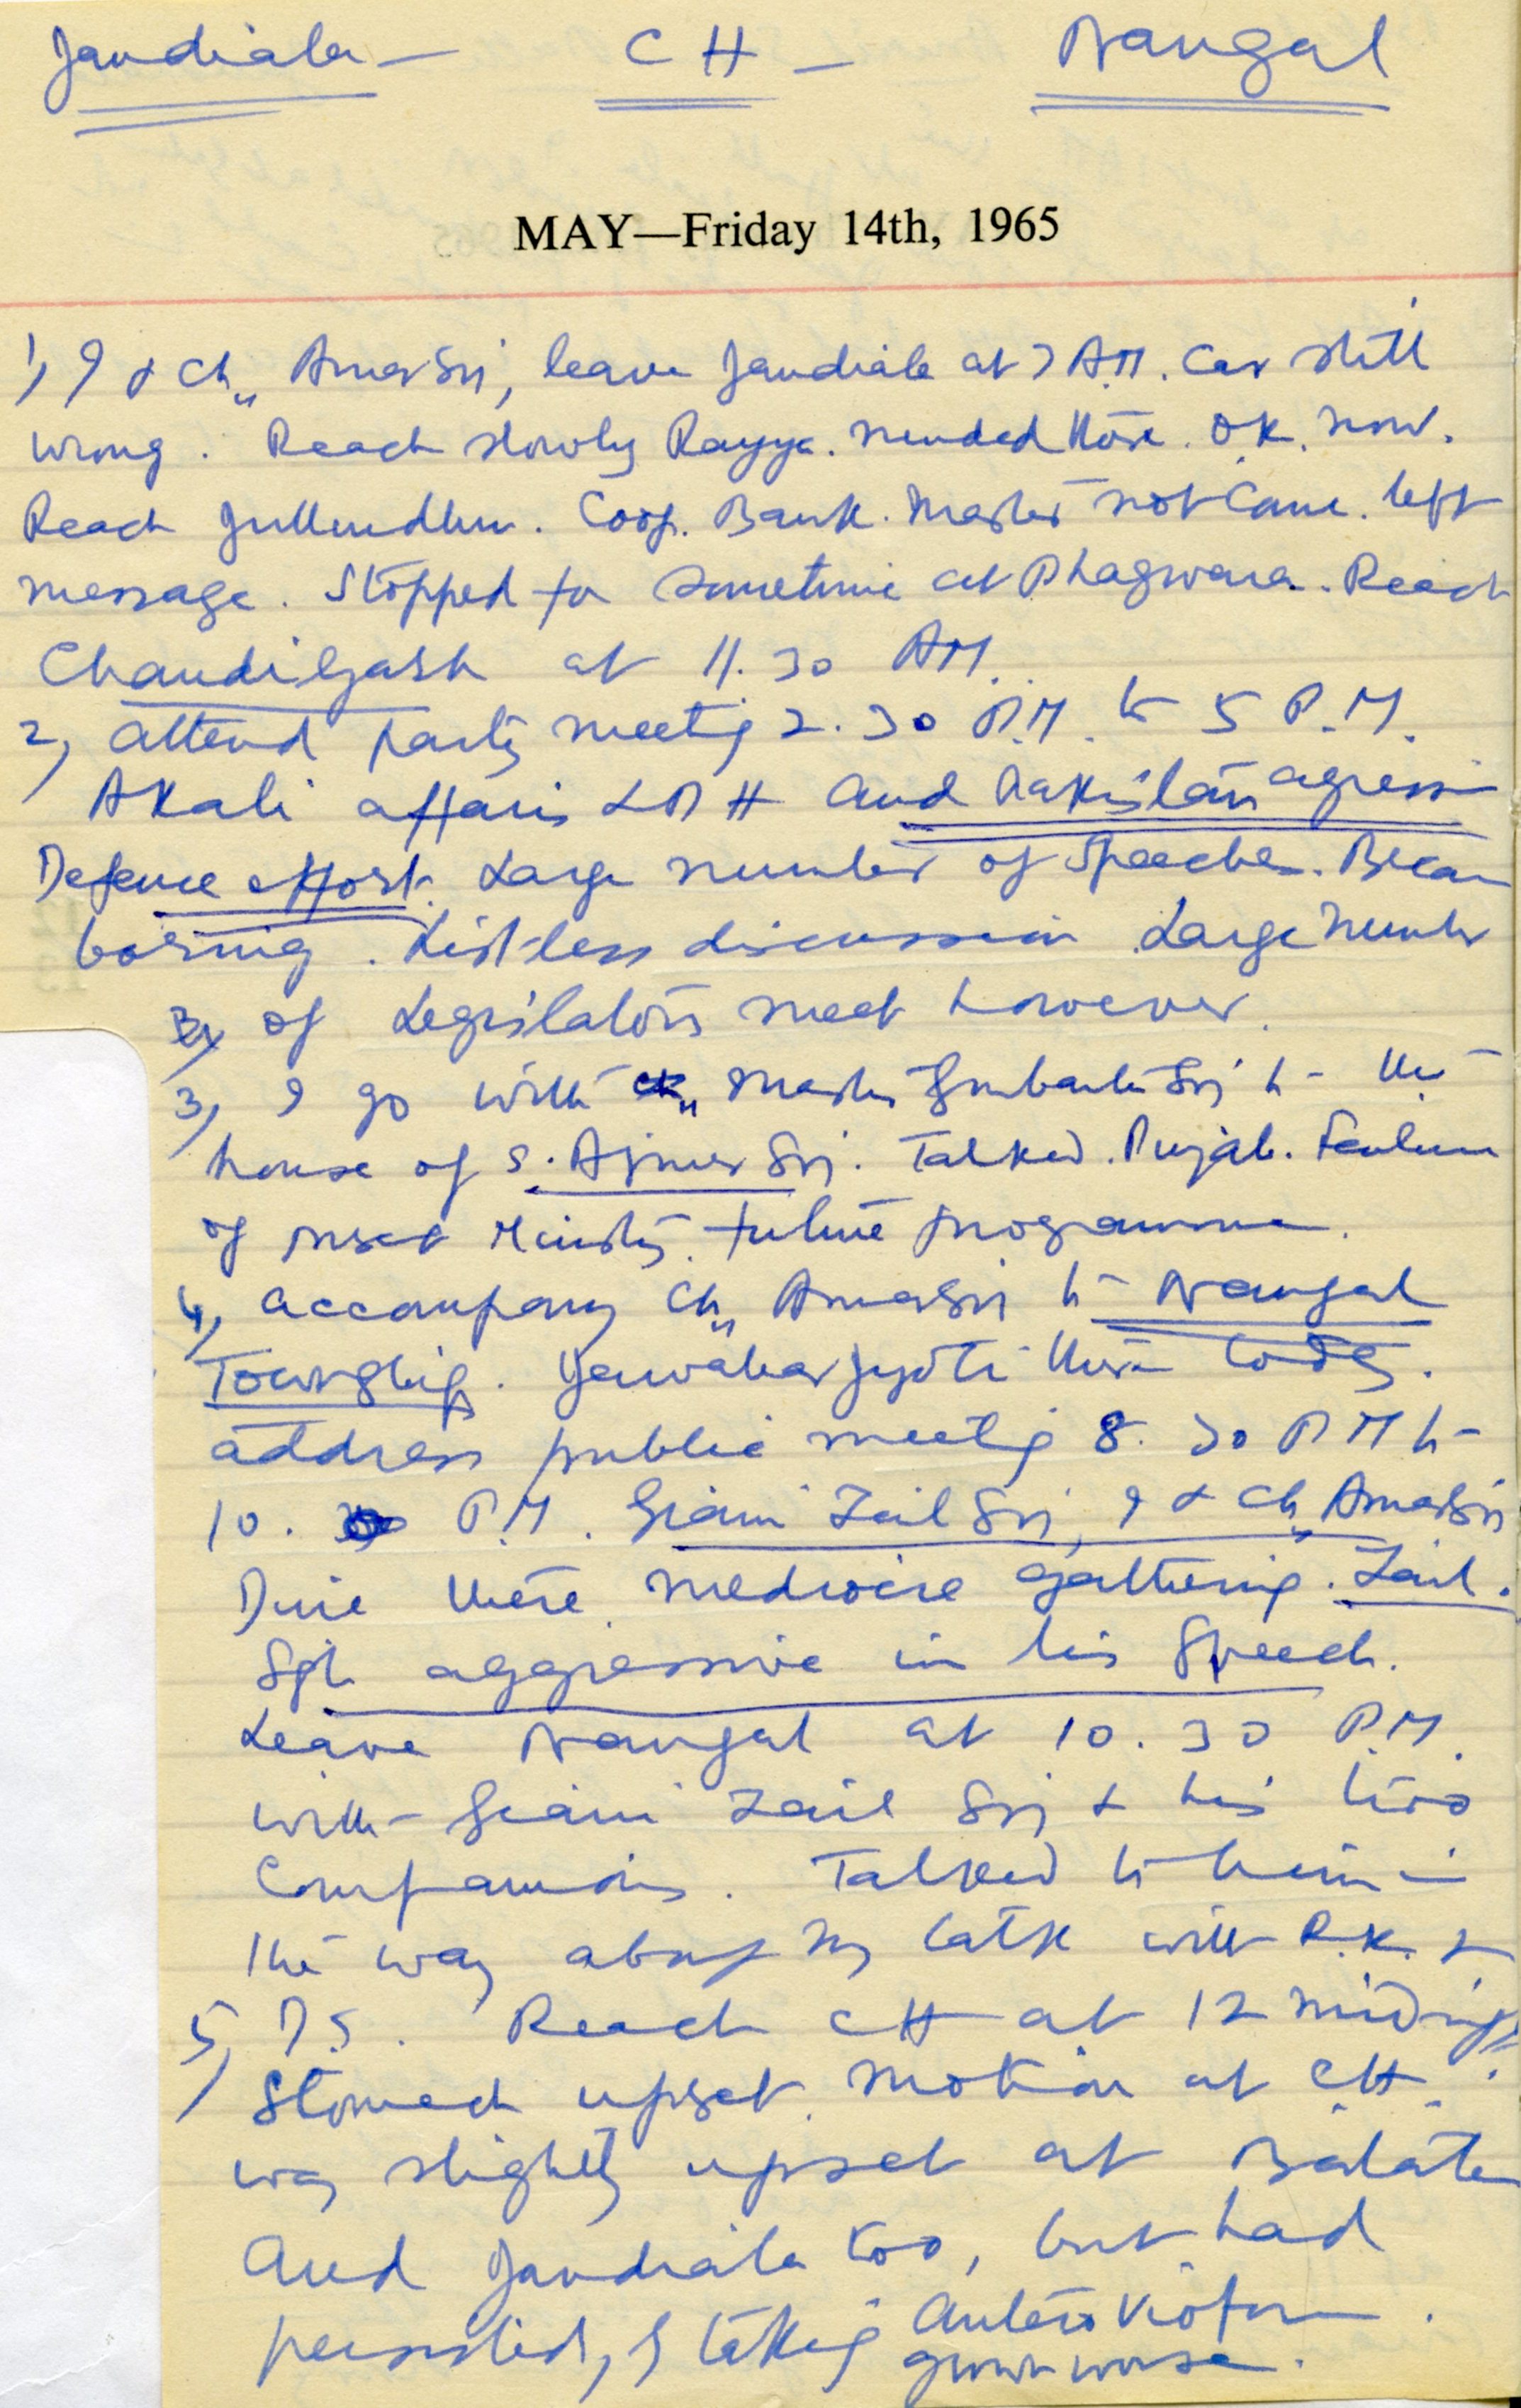 Jandiala — CH — Nangal
MAY—Friday 14th, 1965
1, I & Ch,, Amar Sn, leave Jandiala at 7 A.M. Car still
wrong. Reach slowly Rayya. mended Hose. O.K. now.
Reach Jullundhur. Coop. Bank. Master not Came. left
message. Stopped for sometime at Phagwara. Reach
Chandigarh at 11.30 AM.
2, attend party meeting 2.30 P.M. to 5 P.M.
Akali affairs and Pakistan agression
Defence effort. Large number of Speeches. Became
boring. Listless discussion. Large number
of Legislators meet however.
3, I go with Master Gurbanta Sn to the
house of S. Ajmer Sn. Talked. Punjab. Failure
of Ministry. future programme.
4, accompany Ch,, Amar Sn to Nangal
Township. Jawahar Jyoti there today.
address public meeting 8.30 PM to
10. P.M. Giani Zail Sn, I & Ch,, Amar Sn
there. mediocre gathering. Zail
Sgh aggressive in his Speech.
Leave Nangal at 10.30 P.M.
with Giani Zail Sn & his two
Companions. Talked to him in
the way about my talk with P.K. &
5, D.S. Reach CH at 12 midnight.
Stomach upset. motion at CH.
was slightly upset at Batala
and Jandiala too, but had
persisted, I taking Entero Vioform.
grown worse.